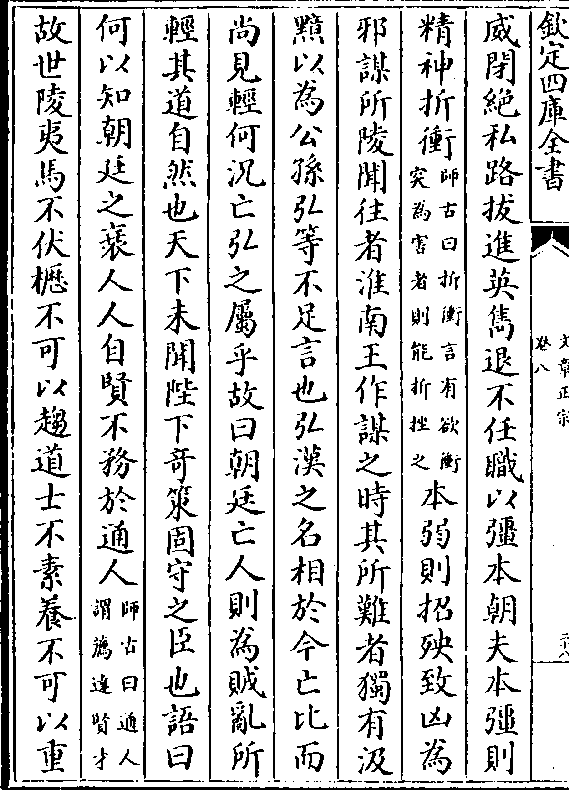 欽定四庫全書
文章正宗
卷八
威閉絶私路拔進英雋退不任職以彊本朝夫本彊則
精神折衝師古曰折衝言有欲衝突為害者則能折挫之本弱則招殃致凶為
邪謀所陵聞往者淮南王作謀之時其所難者獨有汲
黯以為公孫弘等不足言也弘漢之名相於今亡比而
尚見輕何況亡弘之屬乎故曰朝廷亡人則為賊亂所
輕其道自然也天下未聞陛下竒策固守之臣也語曰
何以知朝廷之衰人人自賢不務於通人師古曰通人謂薦達賢才
故世陵夷馬不伏櫪不可以趨道士不素養不可以重